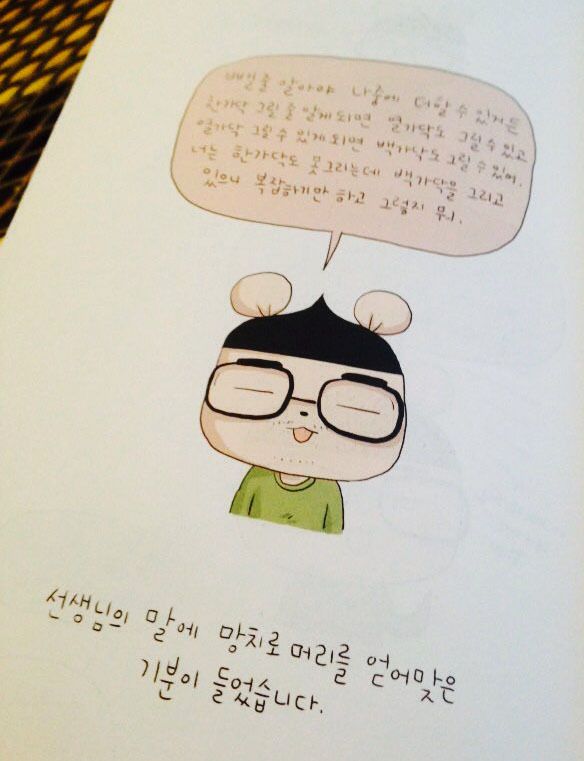 뺄줄 알아야 나중에 더할 수 있거든
한가닥 그릴 줄 알게 되면 열가닥도 그릴 수 있고
열가닥 그릴 수 있게 되면 백가닥도 그릴 수 있어.
너는 한가닥도 못그리는데 백가닥을 그리고
있으니 복잡하기만 하고 그렇지 뭐.
선생님의 말에 망치로 머리를 얻어맞은
기분이 들었습니다.